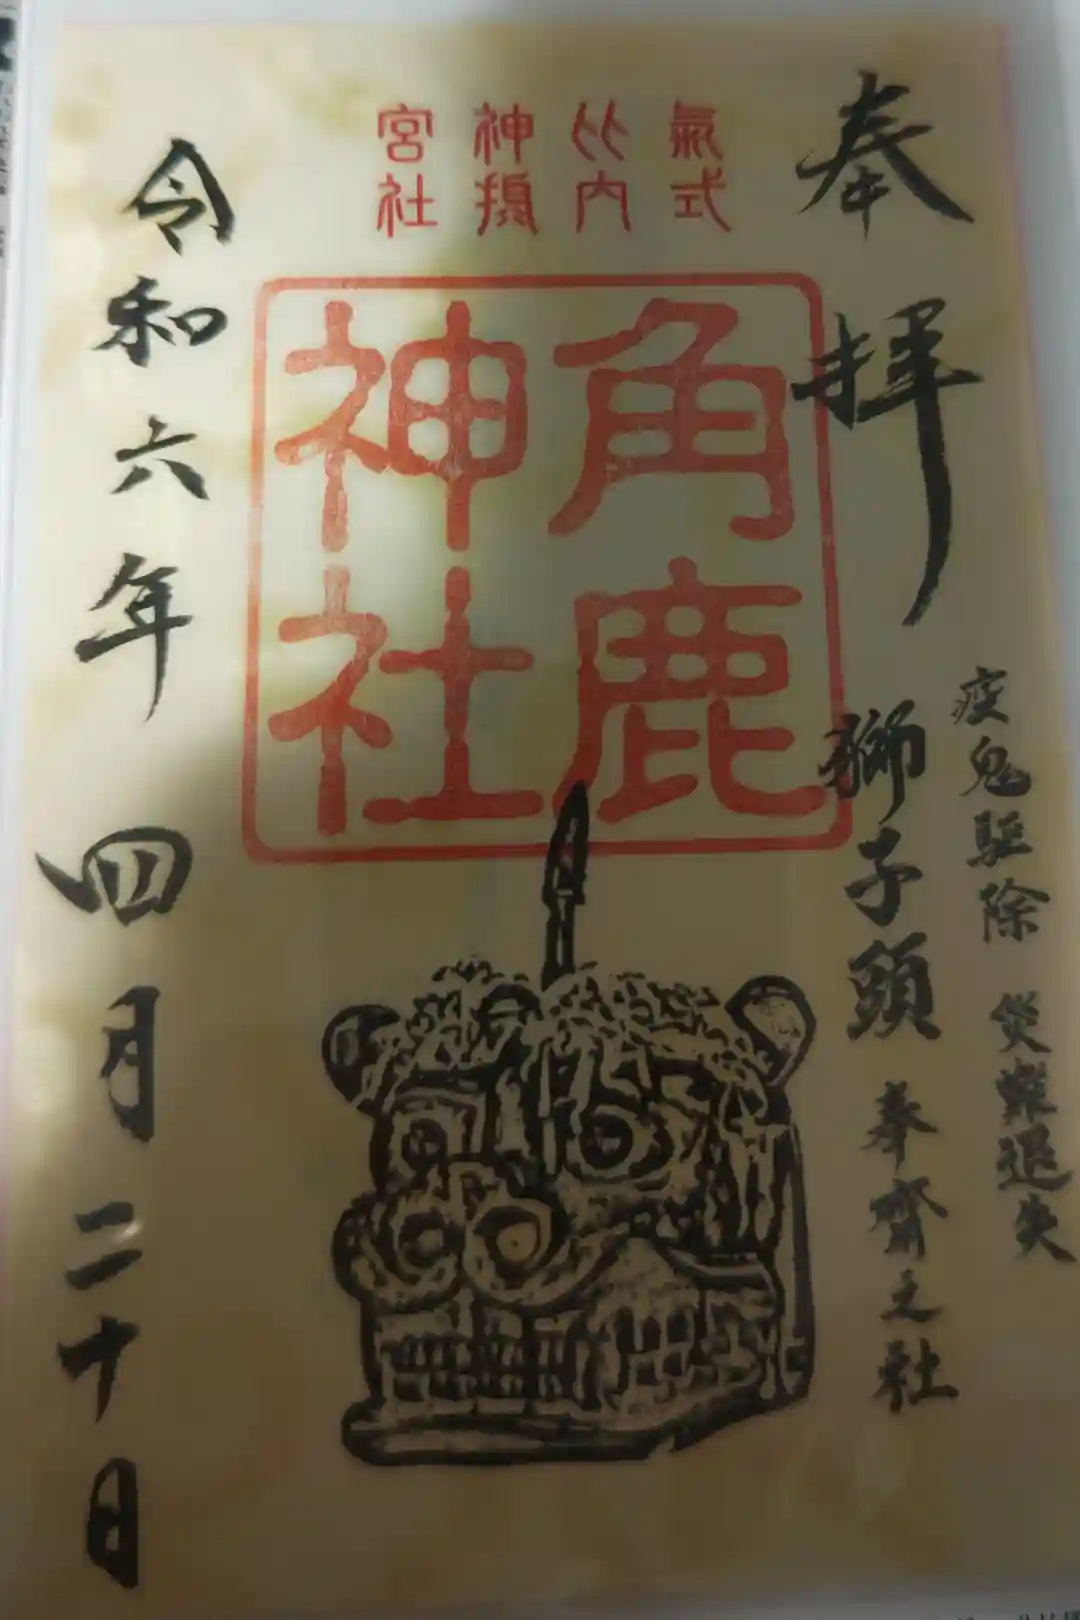 疫鬼駆除 災蠥退失
奉拝
獅子頭 奉齋之社
氣比神宮
式内摂社
角鹿神社
令和六年 四月二十日